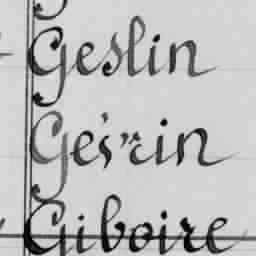 Geslin
Gesrin
Giboire